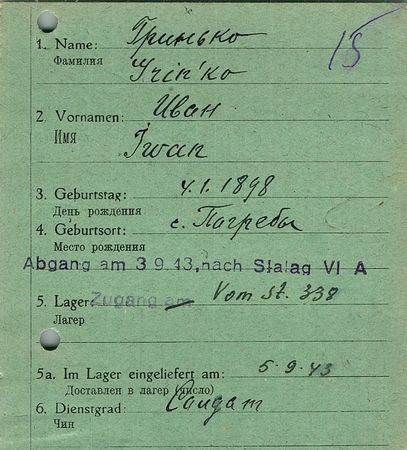 1. Name: Гринько
Фамилия Grin'ko
15
2. Vornamen: Иван
Имя Iwan
3. Geburtstag: 4.1.1898
День рождения
4. Geburtsort: с. Погребы
Место рождения
Abgang am 3 9.43, nach Stalag VI A
5. Lager: Zugang am Vom St. 338
Лагер
5a. Im Lager eingeliefert am: 5.9.43
Доставлен в лагер (число)
6. Dienstgrad: Солдат
Чин